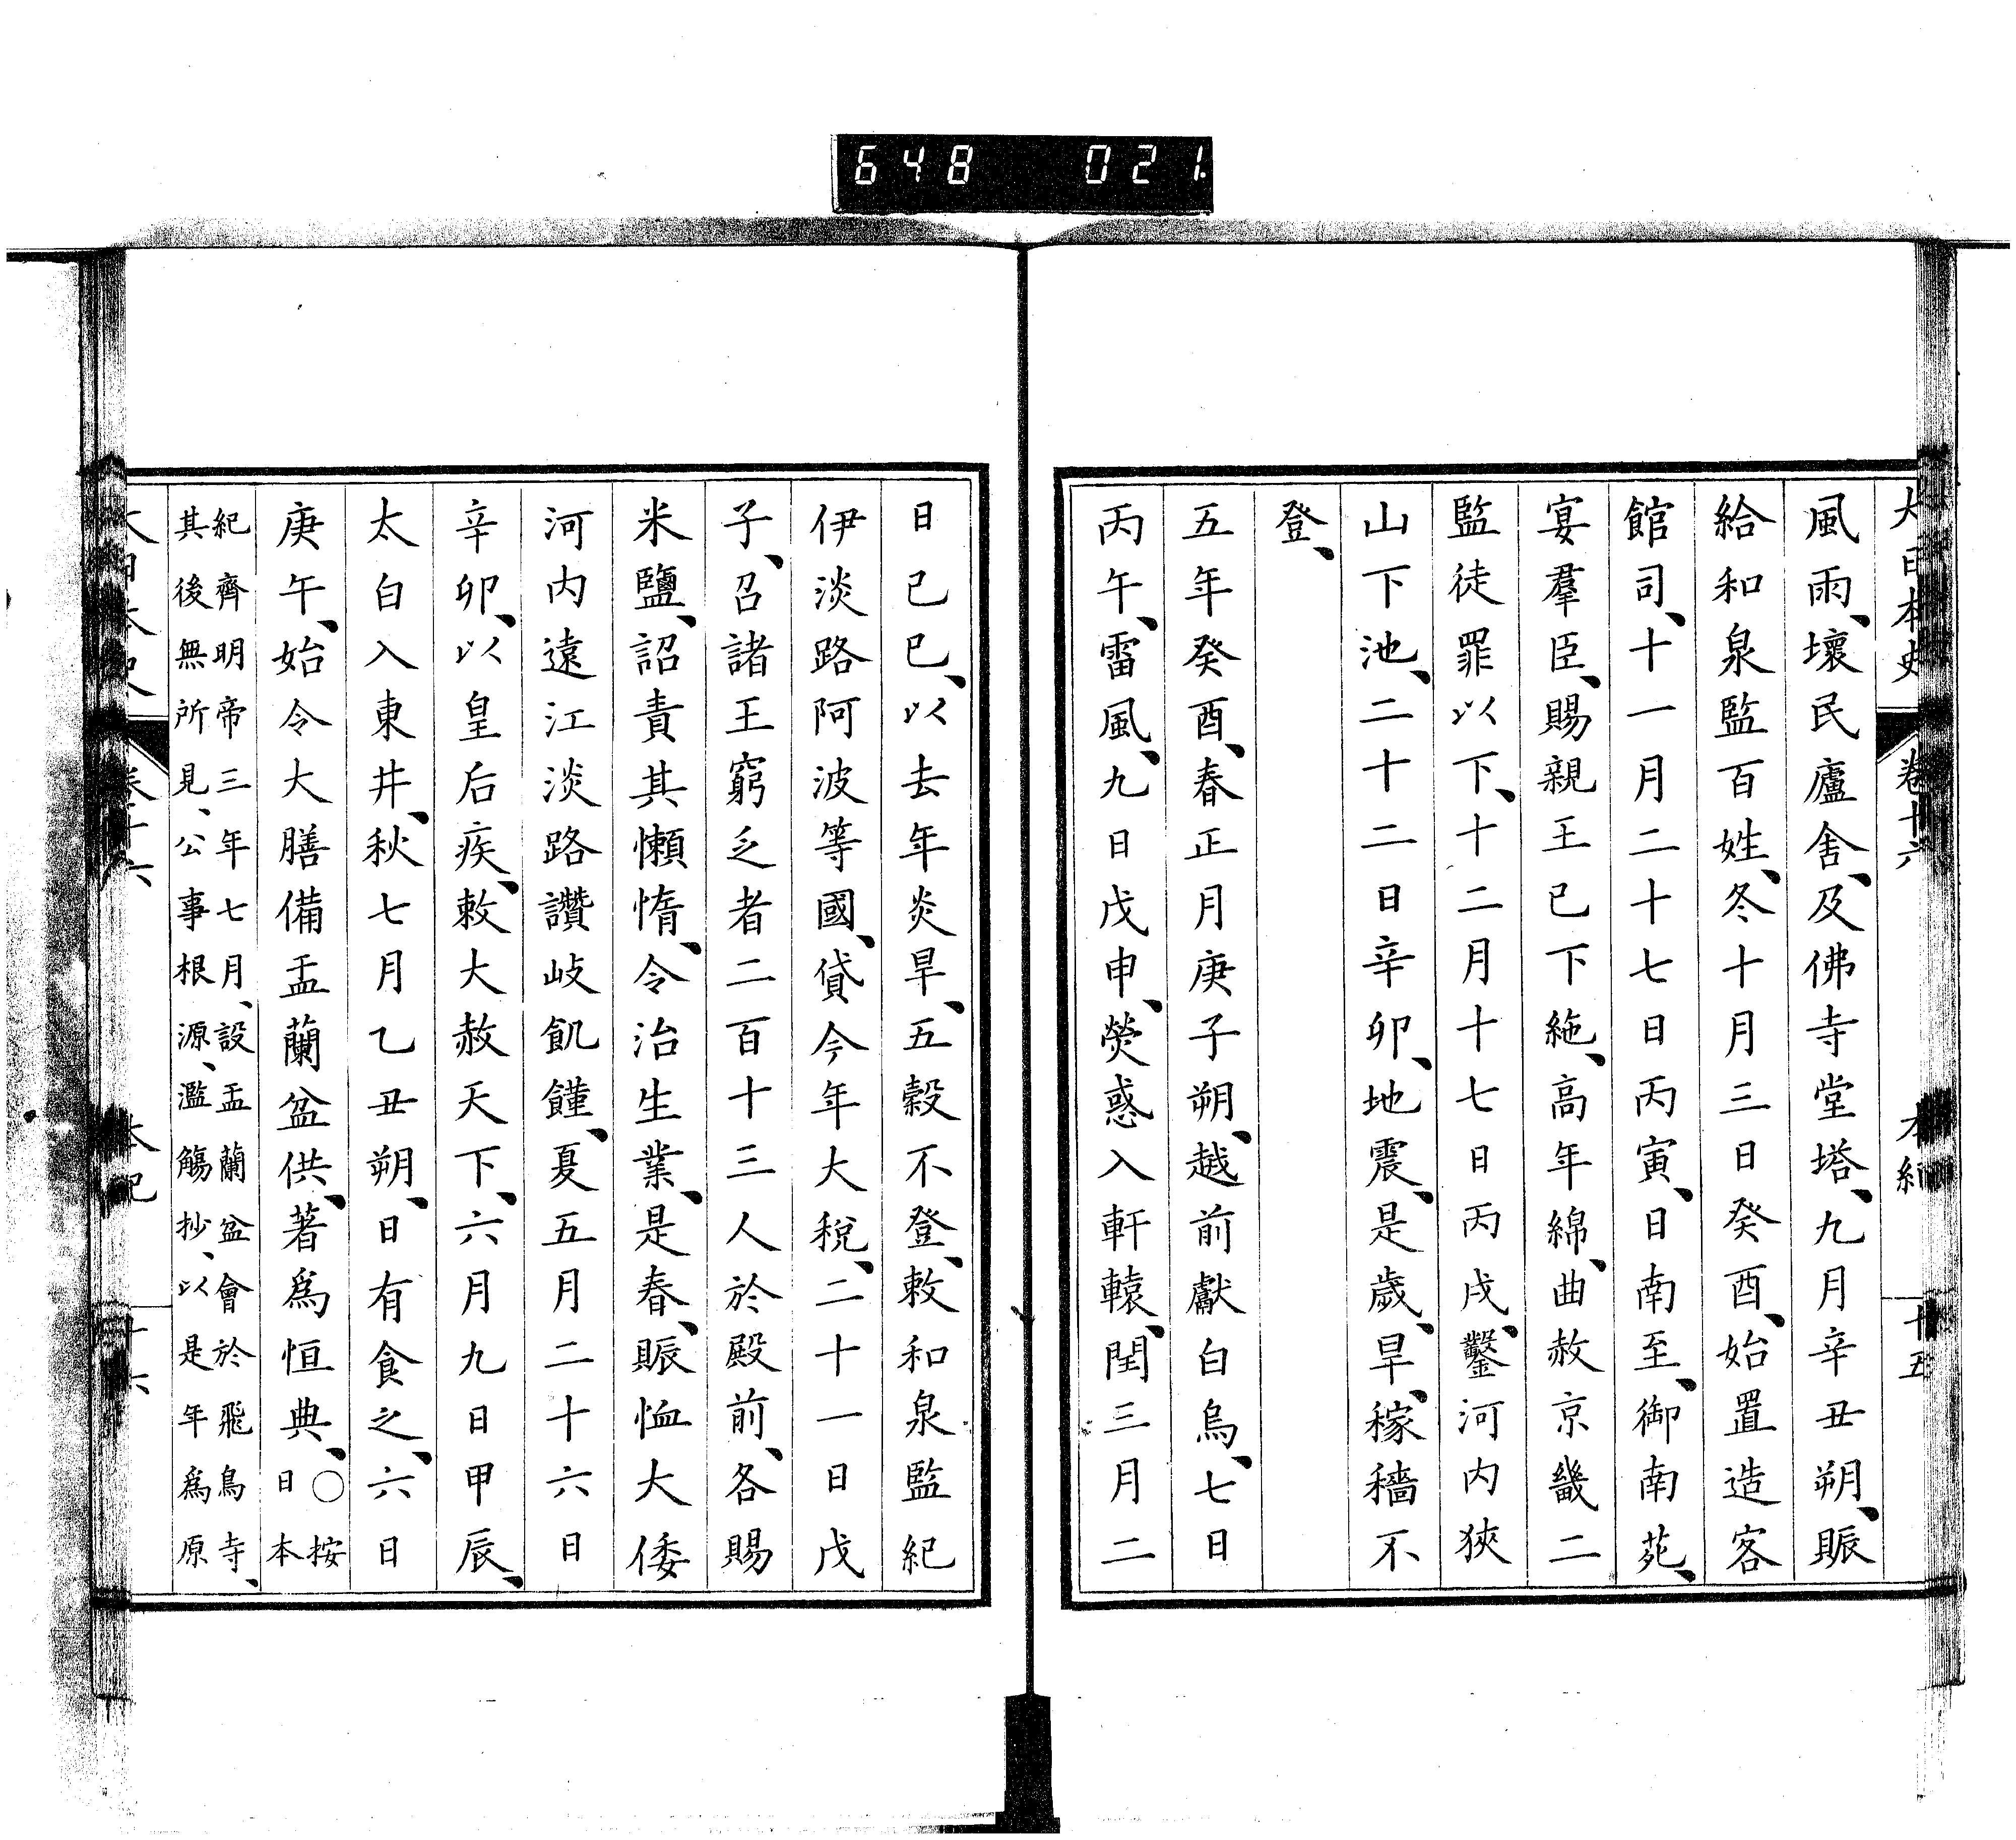 648 021.
大日本史 卷十六 本紀 十五
風雨、壞民廬舍、及佛寺堂塔、九月辛丑朔、賑
給和泉監百姓、冬十月三日癸酉、始置造客
館司、十一月二十七日丙寅、日南至、御南苑、
宴羣臣、賜親王已下絁、高年綿、曲赦京畿二
監徒罪以下、十二月十七日丙戌、鑿河内狹
山下池、二十二日辛卯、地震、是歲、旱、稼穡不
登、
五年癸酉、春正月庚子朔、越前獻白烏、七日
丙午、雷風、九日戊申、熒惑入軒轅、閏三月二
日己巳、以去年炎旱、五穀不登、敕和泉監紀
伊淡路阿波等國、貸今年大稅、二十一日戊
子、召諸王窮乏者二百十三人於殿前、各賜
米鹽、詔責其懶惰、令治生業、是春、賑恤大倭
河内遠江淡路讚岐飢饉、夏五月二十六日
辛卯、以皇后疾、敕大赦天下、六月九日甲辰、
太白入東井、秋七月乙丑朔、日有食之、六日
庚午、始令大膳備盂蘭盆供、著爲恒典、〇按日本
紀齊明帝三年七月、設盂蘭盆會於飛鳥寺、
其後無所見、公事根源、濫觴抄、以是年爲原
大日本史 卷十六 本紀 十六